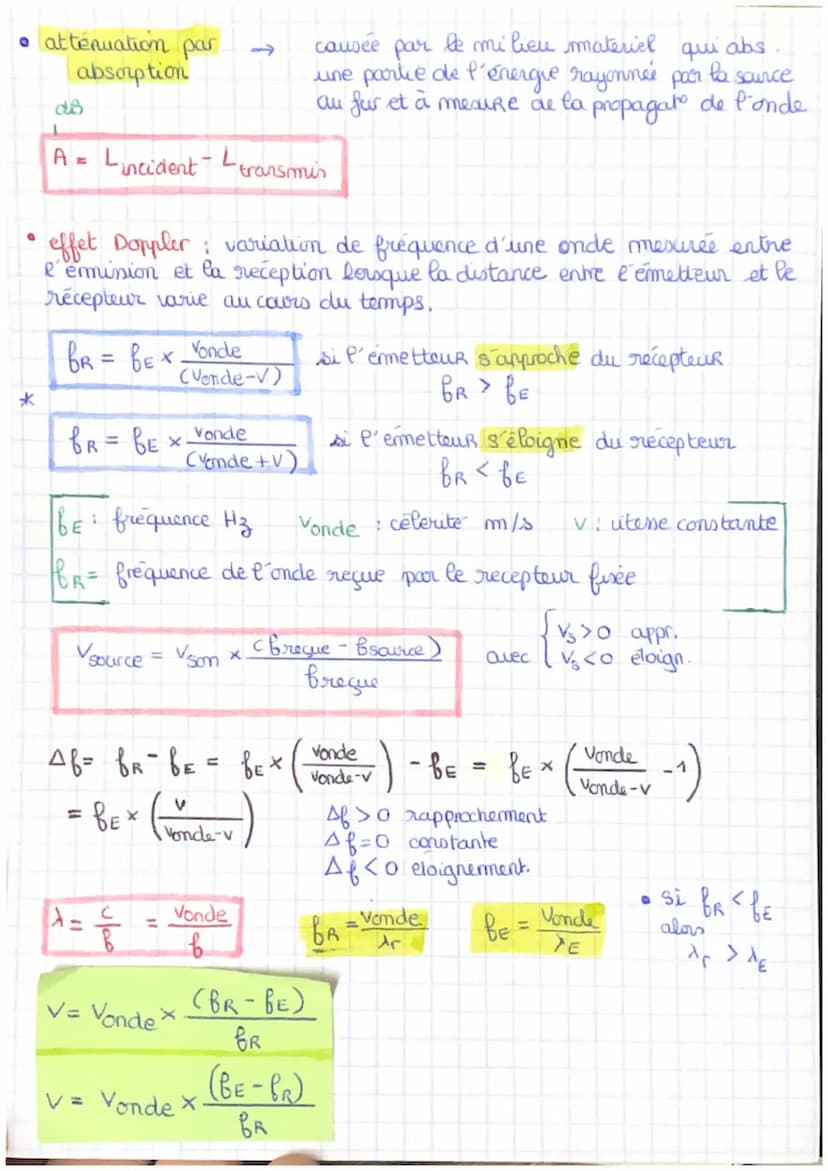 • atténuation par absorption → causée par le milieu materiel qui abs.
une partie de l'énergie rayonnée par la source
au fur et à mesure de la propagat° de l'onde
dB
A = Lincident - Ltransmis
• effet Doppler : variation de fréquence d'une onde mesurée entre
l'émission et la reception lorsque la distance entre l'émetteur et le
récepteur varie au cours du temps.
fR = fE × Vonde/(Vonde-V) si l'émetteur s'approche du récepteur
fR > fE
*
fR = fE × Vonde/(Vonde+V) si l'emetteur s'éloigne du récepteur
fR < fE
fE : fréquence Hz Vonde : célerité m/s V : vitesse constante
fR = fréquence de l'onde reçue par le recepteur fixée
Vsource = Vson × (freçue - fsource)/freçue avec { Vs>0 appr.
Vs<0 éloign.
Δf = fR - fE = fE × (Vonde/Vonde-v) - fE = fE × (Vonde/Vonde-v -1)
= fE × (v/Vonde-v) Δf>0 rapprochement
Δf=0 constante
Δf<0 eloignement.
λ = c/f = Vonde/f fR = Vonde/λr fE = Vonde/λE • si fR < fE
alors
λr > λE
V = Vonde × (fR - fE)/fR
V = Vonde × (fE - fR)/fR